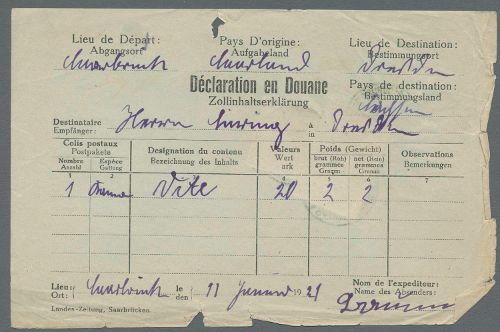 Lieu de Départ: Pays D'origine: Lieu de Destination:
Abgangsort Aufgabeland Bestimmungsort
Saarbrück Saarland Dresden
Déclaration en Douane
Zollinhaltserklärung
Pays de destination:
Bestimmungsland
Sachsen
Destinataire
Empfänger: Herrn à in Dresden
Colis postaux
Postpakete
Designation du contenu
Bezeichnung des Inhalts
Valeurs
Wert
ark
Poids (Gewicht)
Observations
Bemerkungen
Nombre
Anzahl
Espèce
Gattung
brut (Roh)
grammes
Gramm
net (Rein)
grammes
Gramm
2 4 5 6 7
1 20 2 2
Lieu:
Ort: Saarbrück le den 11 Januar 1921
Nom de l'expediteur:
Name des Absenders:
Landes-Zeitung, Saarbrücken